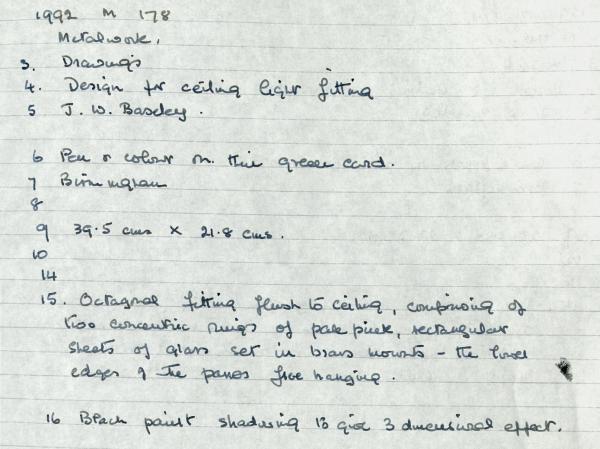 1992 M 178
Metalwork.
3. Drawings
4. Design for ceiling light fitting
5 J. W. Baseley.
6 Pen & colour on thin green card.
7 Birmingham
8
9 39.5 cms x 21.8 cms.
10
14
15. Octagonal fitting flush to ceiling, comprising of
two concentric rings of pale pink, rectangular
sheets of glass set in brass mounts - the lower
edges of the panes free hanging.
16 Black paint shadowing to give 3 dimensional effect.